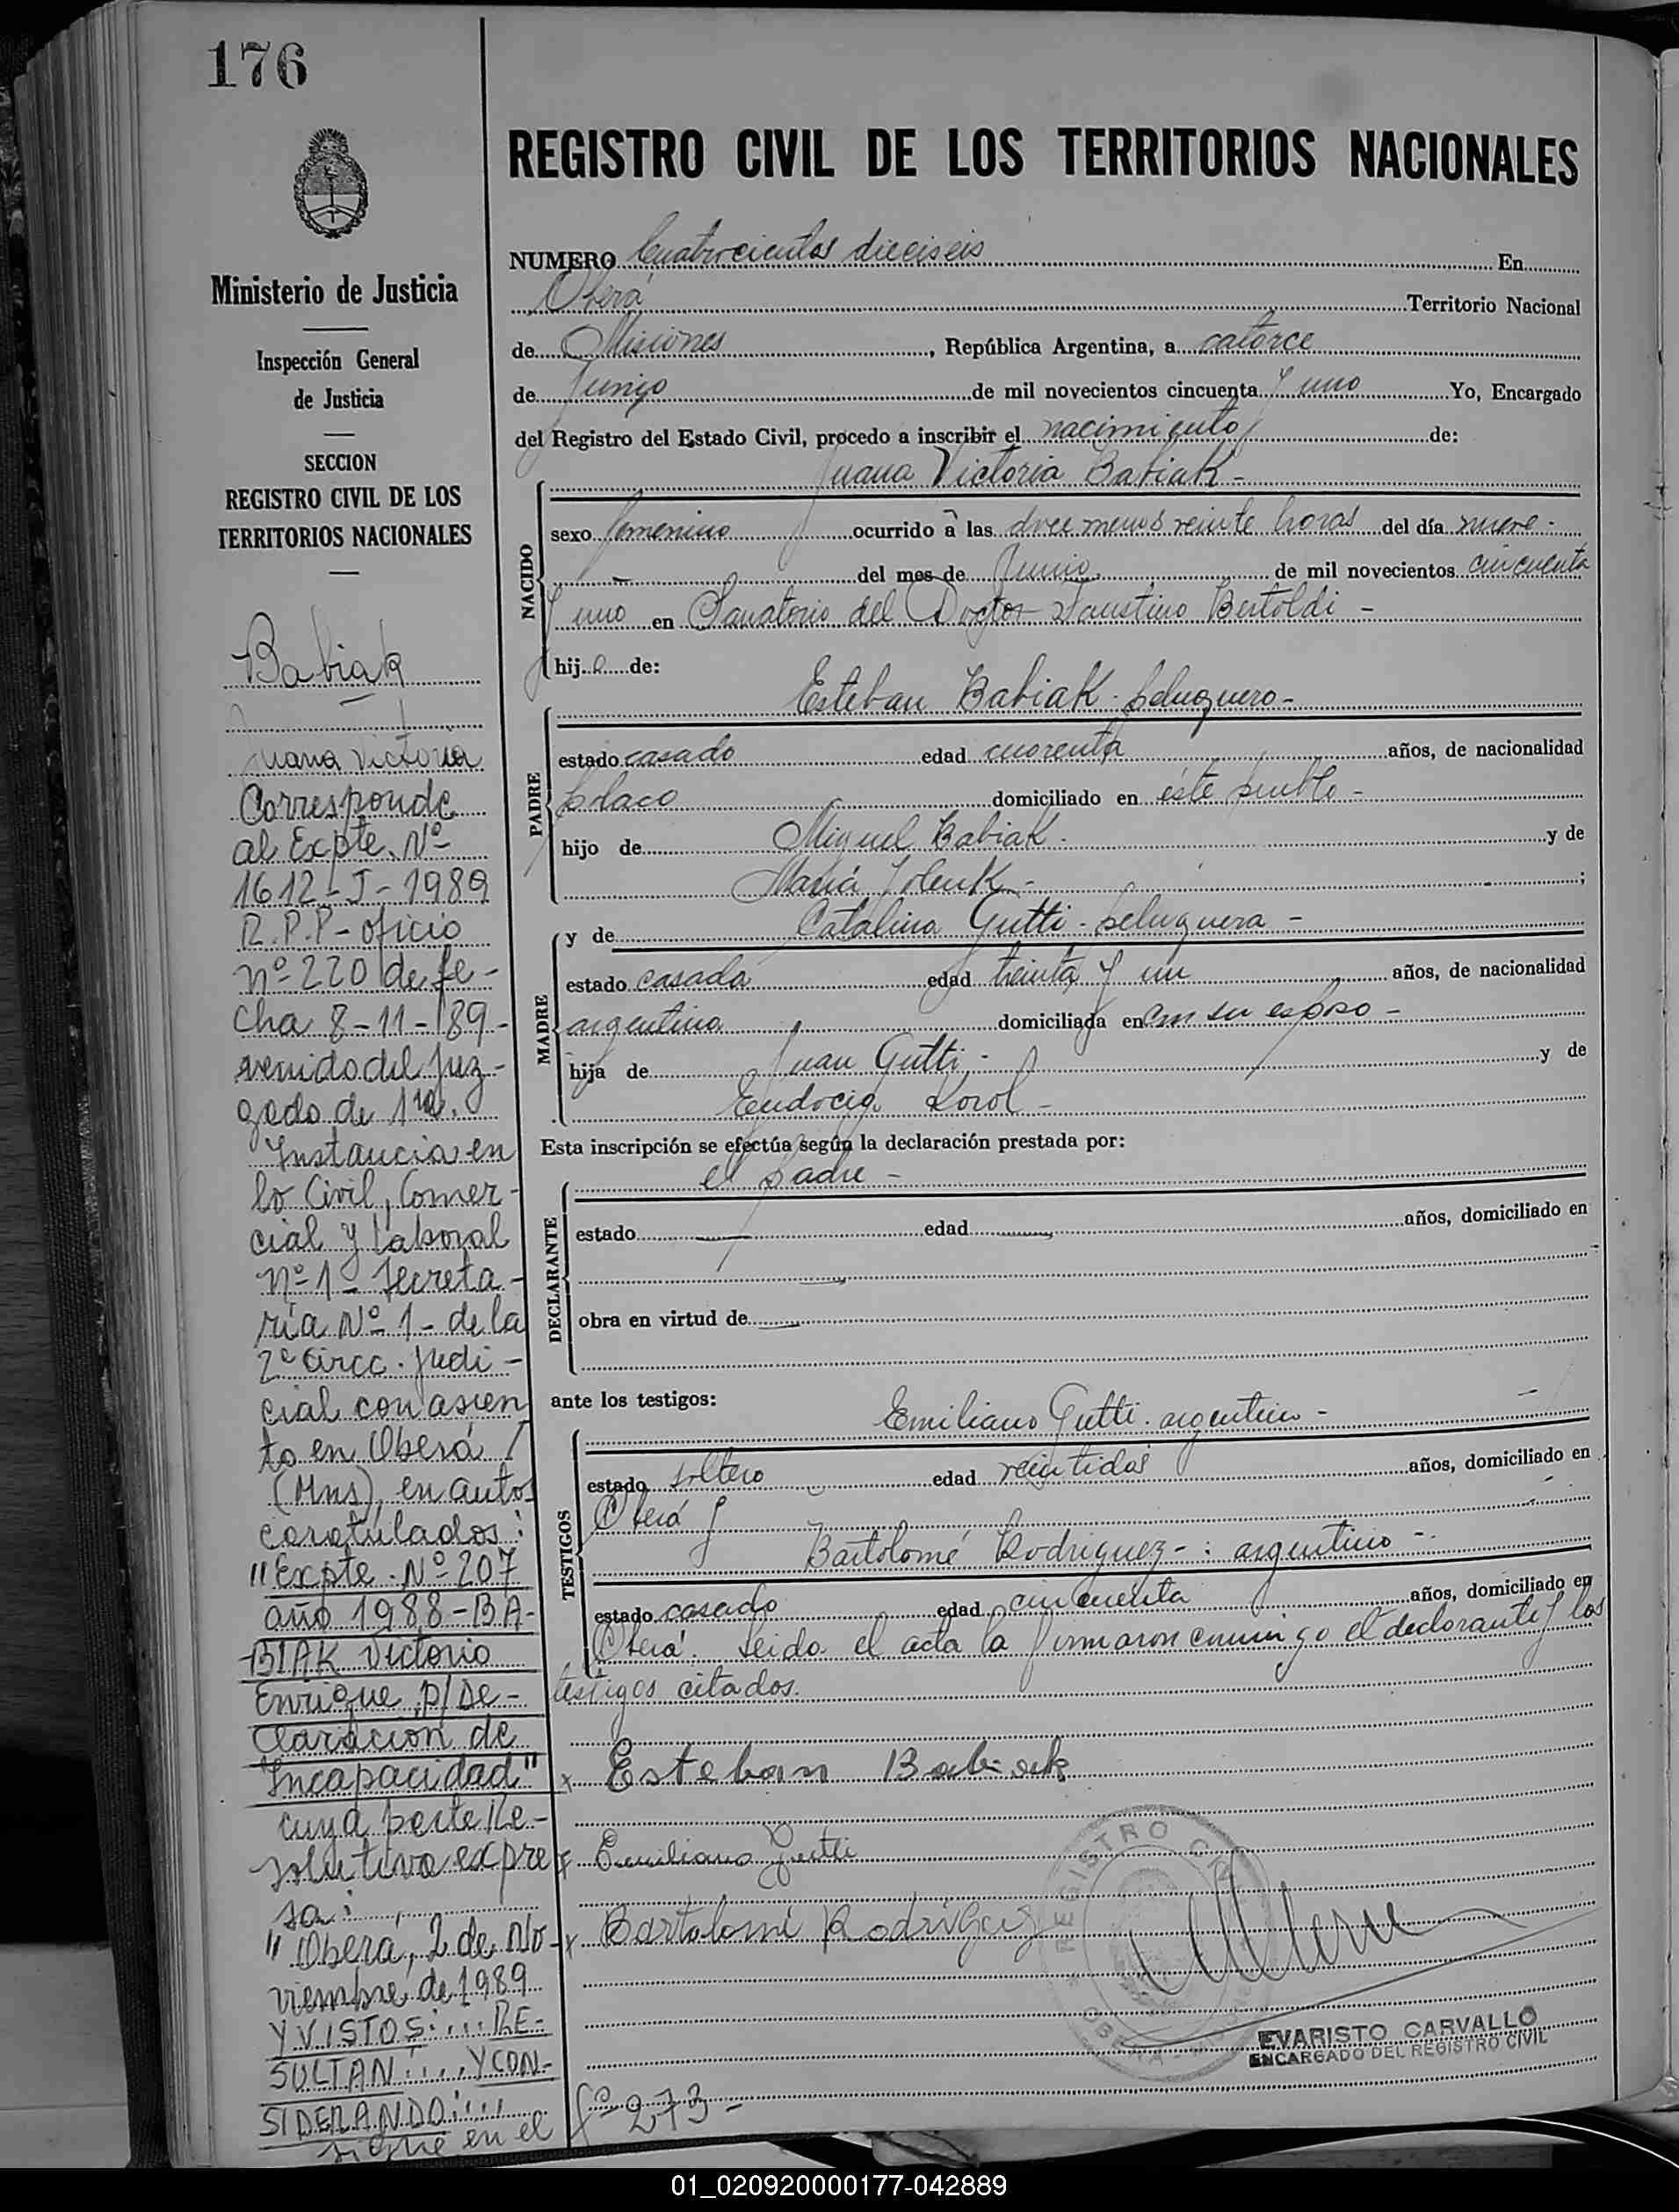 176
Ministerio de Justicia
Inspección General
de Justicia
SECCION
REGISTRO CIVIL DE LOS
TERRITORIOS NACIONALES
Babiak
Juana Victoria
Corresponde
al Expte. Nº
1612-J-1989
R.P.P - oficio
nº 220 de fe-
cha 8-11-89-
venido del Juz-
gado de 1ra.
Instancia en
lo Civil, Comer-
cial y Laboral
nº 1 - Secreta-
ría Nº 1 - de la
2º Circc. Judi-
cial con asien
to en Oberá /
(Mns), en autos
caratulados:
"Expte. Nº 207
año 1988 - BA-
BIAK Victorio
Enrique p/ De-
claración de
Incapacidad"
cuya parte Re-
solutiva expre
sa:
"Oberá, 2 de No-
viembre de 1989
Y VISTOS:... RE-
SULTAN:.... Y CON-
SIDERANDO:....
sigue en el fº 273-
REGISTRO CIVIL DE LOS TERRITORIOS NACIONALES
NUMERO Cuatrocientos dieciseis En
Oberá Territorio Nacional
de Misiones, República Argentina, a catorce
de Junio de mil novecientos cincuenta y uno Yo, Encargado
del Registro del Estado Civil, procedo a inscribir el nacimiento de:
Juana Victoria Babiak -
NACIDO
sexo femenino ocurrido a las doce menos veinte horas del día nueve -
del mes de Junio de mil novecientos cincuenta
y uno en Sanatorio del Doctor Faustino Bertoldi -
hija de:
Esteban Babiak - peluquero -
PADRE
estado casado edad cuarenta años, de nacionalidad
polaco domiciliado en éste pueblo -
hijo de Miguel Babiak - y de
María -;
y de Catalina Gutti - peluquera -
MADRE
estado casada edad treinta y un años, de nacionalidad
argentina domiciliada en con su esposo -
hija de Juan Gutti - y de
Eudocia Korol -
Esta inscripción se efectúa según la declaración prestada por:
el padre -
DECLARANTE
estado edad años, domiciliado en
obra en virtud de
ante los testigos:
Emiliano Gutti - argentino -
TESTIGOS
estado soltero edad veintidos años, domiciliado en
Oberá y
Bartolomé Rodriguez - : argentino -
estado casado edad cincuenta años, domiciliado en
Oberá. Leida el acta la firmaron conmigo el declarante y los
testigos citados.
x Esteban Babiak
x Emiliano Gutti
x Bartolomé Rodriguez
REGISTRO CIVIL
OBERA
EVARISTO CARVALLO
ENCARGADO DEL REGISTRO CIVIL
01_020920000177-042889